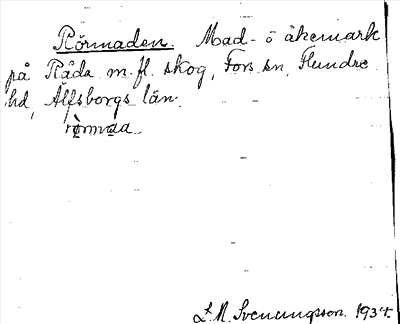 Rörmaden. Mad- o åkermark
på Råda m.fl. skog, Fors sn, Flundre
hd, Älfsborgs län.
rörmaa.
Svenungsson. 1934.